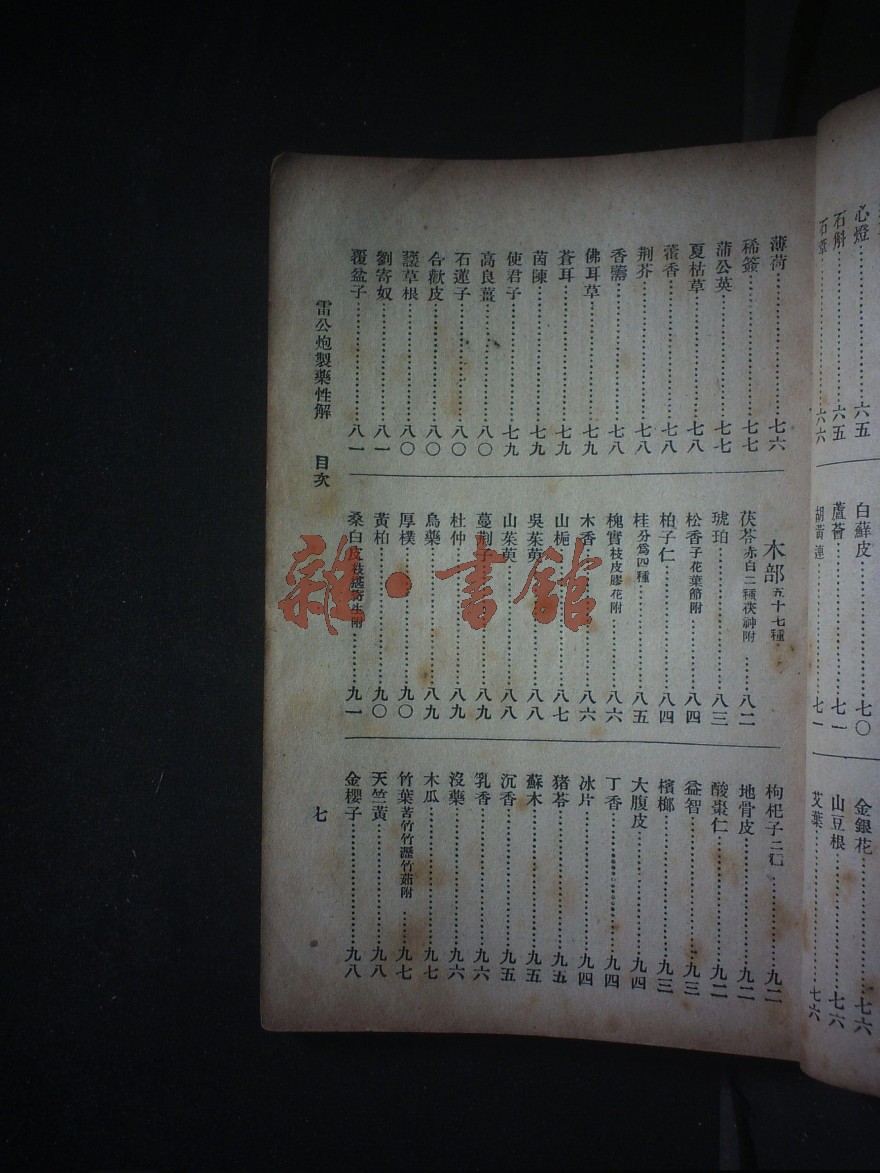 心燈……六五
石斛……六五
石韋……六六
白蘚皮……七〇
蘆薈……七一
胡黃連……七一
金銀花……七六
山豆根……七六
艾葉……七六
薄荷……七六
稀簽……七七
蒲公英……七七
夏枯草……七八
藿香……七八
荆芥……七八
香薷……七八
佛耳草……七九
蒼耳……七九
茵陳……七九
使君子……七九
高良薑……八〇
石蓮子……八〇
合歡皮……八〇
諼草根……八〇
劉寄奴……八一
覆盆子……八一
木部五十七種
茯苓赤白二種茯神附……八二
琥珀……八三
松香子花葉節附……八四
柏子仁……八四
桂分爲四種……八五
槐實枝皮膠花附……八六
木香……八六
山梔……八七
吳茱萸……八八
山茱萸……八八
蔓荆子……八九
杜仲……八九
烏藥……八九
厚樸……九〇
黃柏……九〇
桑白皮……九一
枸杞子……九二
地骨皮……九二
酸棗仁……九二
益智……九三
檳榔……九三
大腹皮……九四
丁香……九四
冰片……九四
猪苓……九五
蘇木……九五
沉香……九五
乳香……九六
沒藥……九六
木瓜……九七
竹葉苦竹竹瀝竹茹附……九七
天竺黃……九八
金櫻子……九八
雷公炮製藥性解 目次 七
雜·書館